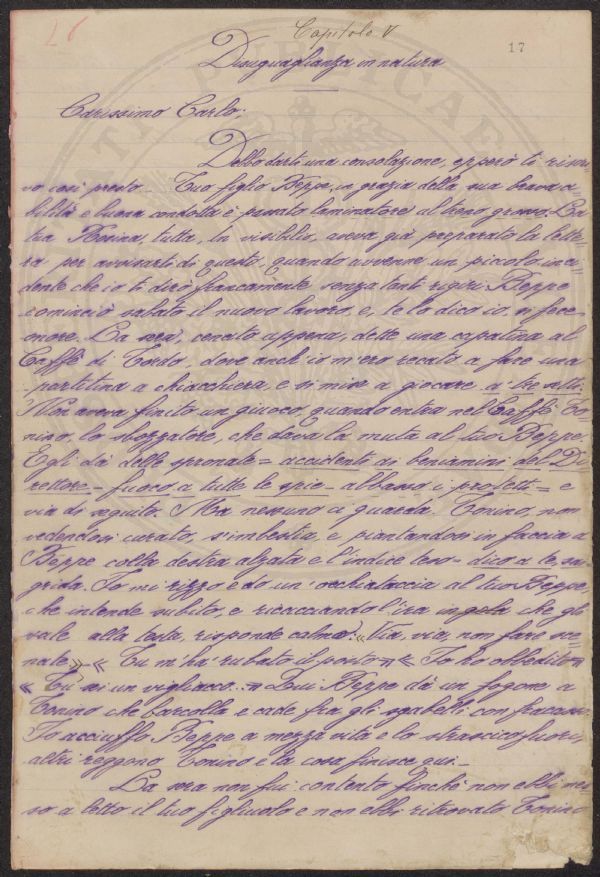 26
Capitolo V
17
Disuguaglianza in natura
Carissimo Carlo,
Debbo darti una consolazione, epperò ti riscri-
vo così presto. - Tuo figlio Beppe, in grazia della sua brava a-
bilità e buona condotta è passato laminatore al treno grosso. La
tua Rosina, tutta, in visibilio, aveva già preparato la lette-
ra per avvisarti di questo, quando avvenne un piccolo inci-
dente che io ti dirò francamente senza tanti rigiri. Beppe
cominciò sabato il nuovo lavoro, e, te lo dico io, si fece
onore. La sera, cenato appena, dette una capatina al
Caffè di Tordo, dove anch'io m'ero recato a fare una
partitina a chiacchiera, e si mise a giocare a tre sette.
Non aveva finito un giuoco, quando entra nel Caffè To-
nino, lo sbozzatore, che dava la muta al tuo Beppe.
Egli dà delle spronate = accidenti ai beniamini del Di-
rettore - fuoco a tutte le spie - abbasso i protetti = e
via di seguito. Ma nessuno a guarda. Tonino, non
vedendosi curato, s'imbestia, e piantandosi in faccia a
Beppe colla destra alzata e l'indice teso = dico a te, sa-
grida. Io mi rizzo e do un'occhiataccia al tuo Beppe,
che intende subito, e ricacciando l'ira in gola che gli
sale alla testa, risponde calmo: « Via, via, non fare sce-
nate » - « Tu m'ha' rubato il posto » « Io ho obbedito »
« Tu sei un vigliacco... » Qui Beppe dà un fogone a
Tonino che barcolla e cade fra gli sgabelli con fracasso.
Io acciuffo Beppe a mezza vita e lo strascico fuori,
altri reggono Tonino e la cosa finisce qui. -
La sera non fui contento finchè non ebbi mes-
so a letto il tuo figliuolo e non ebbi ritrovato Tonino